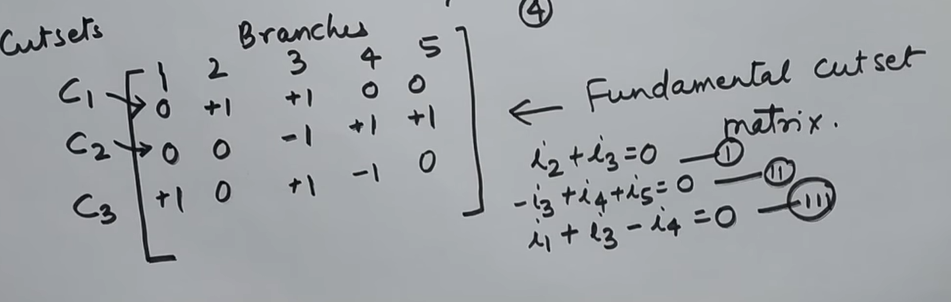 ④
Cutsets Branches
1 2 3 4 5
C1 → 0 +1 +1 0 0
C2 → 0 0 -1 +1 +1
C3 +1 0 +1 -1 0
← Fundamental cutset
matrix.
i2 + i3 = 0 — Ⓘ
-i3 + i4 + i5 = 0 — (II)
i1 + i3 - i4 = 0 — (III)